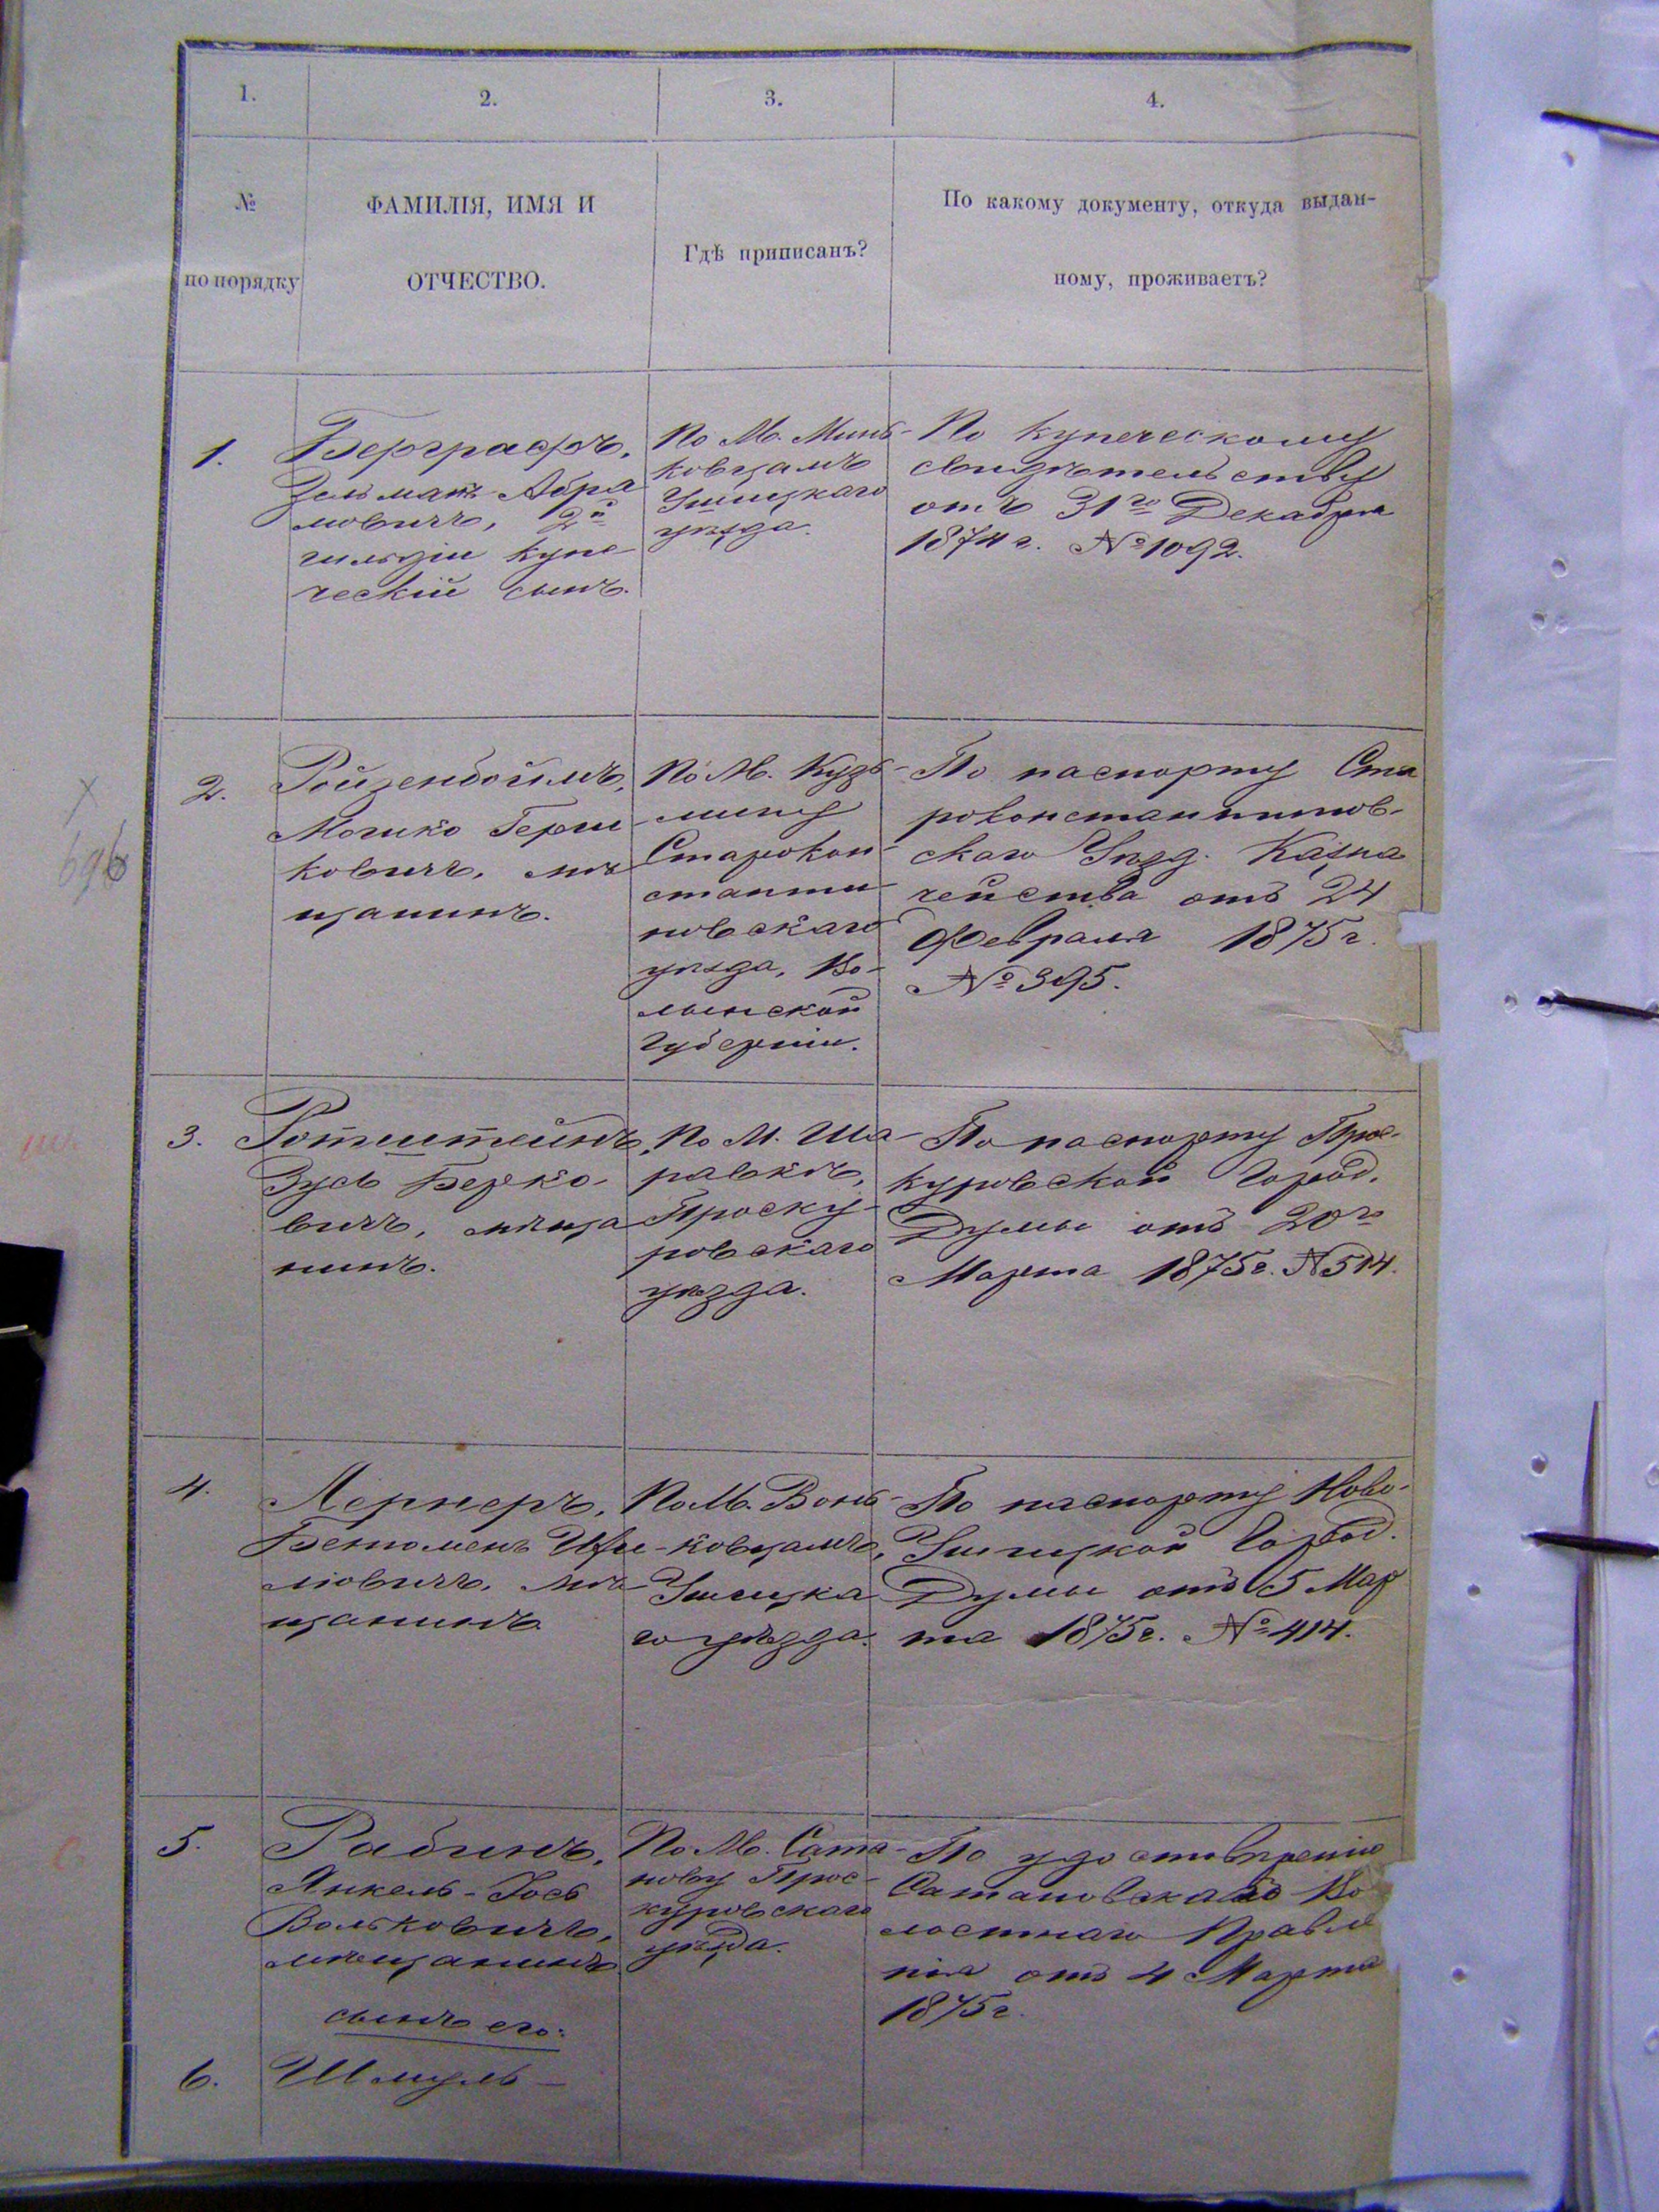 1.
2.
3.
4.
№
по порядку
ФАМИЛІЯ, ИМЯ И
ОТЧЕСТВО.
Гдѣ приписанъ?
По какому документу, откуда выдан-
ному, проживаетъ?
1.
Берграфъ,
Зельманъ Абра
мовичъ, 2й
гильдіи купе
ческій сынъ.
По М. Минь-
ковцамъ
Ушицкаго
уѣзда.
По купеческому
свидѣтельству
отъ 31го Декабря
1874 г. № 1092.
2.
Ройзенбоймъ,
Мошко Герш-
ковичъ, мѣ
щанинъ.
По М. Кузь-
мину
Старокон-
станти-
новскаго
уѣзда, Во-
лынской
Губерніи.
По паспорту Ста
роконстантинов-
скаго Уѣзд. Казна
чейства отъ 24
Февраля 1875 г.
№ 395.
3.
Ротштейнъ,
Зусь Берко-
вичъ, мѣща
нинъ.
По М. Ша-
равкѣ,
Проску-
ровскаго
уѣзда.
По паспорту Прос-
куровской Город.
Думы отъ 20го
Марта 1875 г. № 514.
4.
Лернеръ,
мѣ-
щанинъ
По М. Вонь-
ковцамъ,
Ушицка
го уѣзда.
По паспорту Ново-
Ушицкой Город.
Думы отъ 5 Мар
та 1875 г. № 414.
5.
Рабинъ,
Янкель-Іось
Вольковичъ,
мѣщанинъ
сынъ его:
По М. Сата-
нову Прос-
куровскаго
уѣзда.
По удостовѣренію
Сатановскаго Во
лостнаго Правле
нія отъ 4 Марта
1875 г.
6.
Шмуль —
х
696